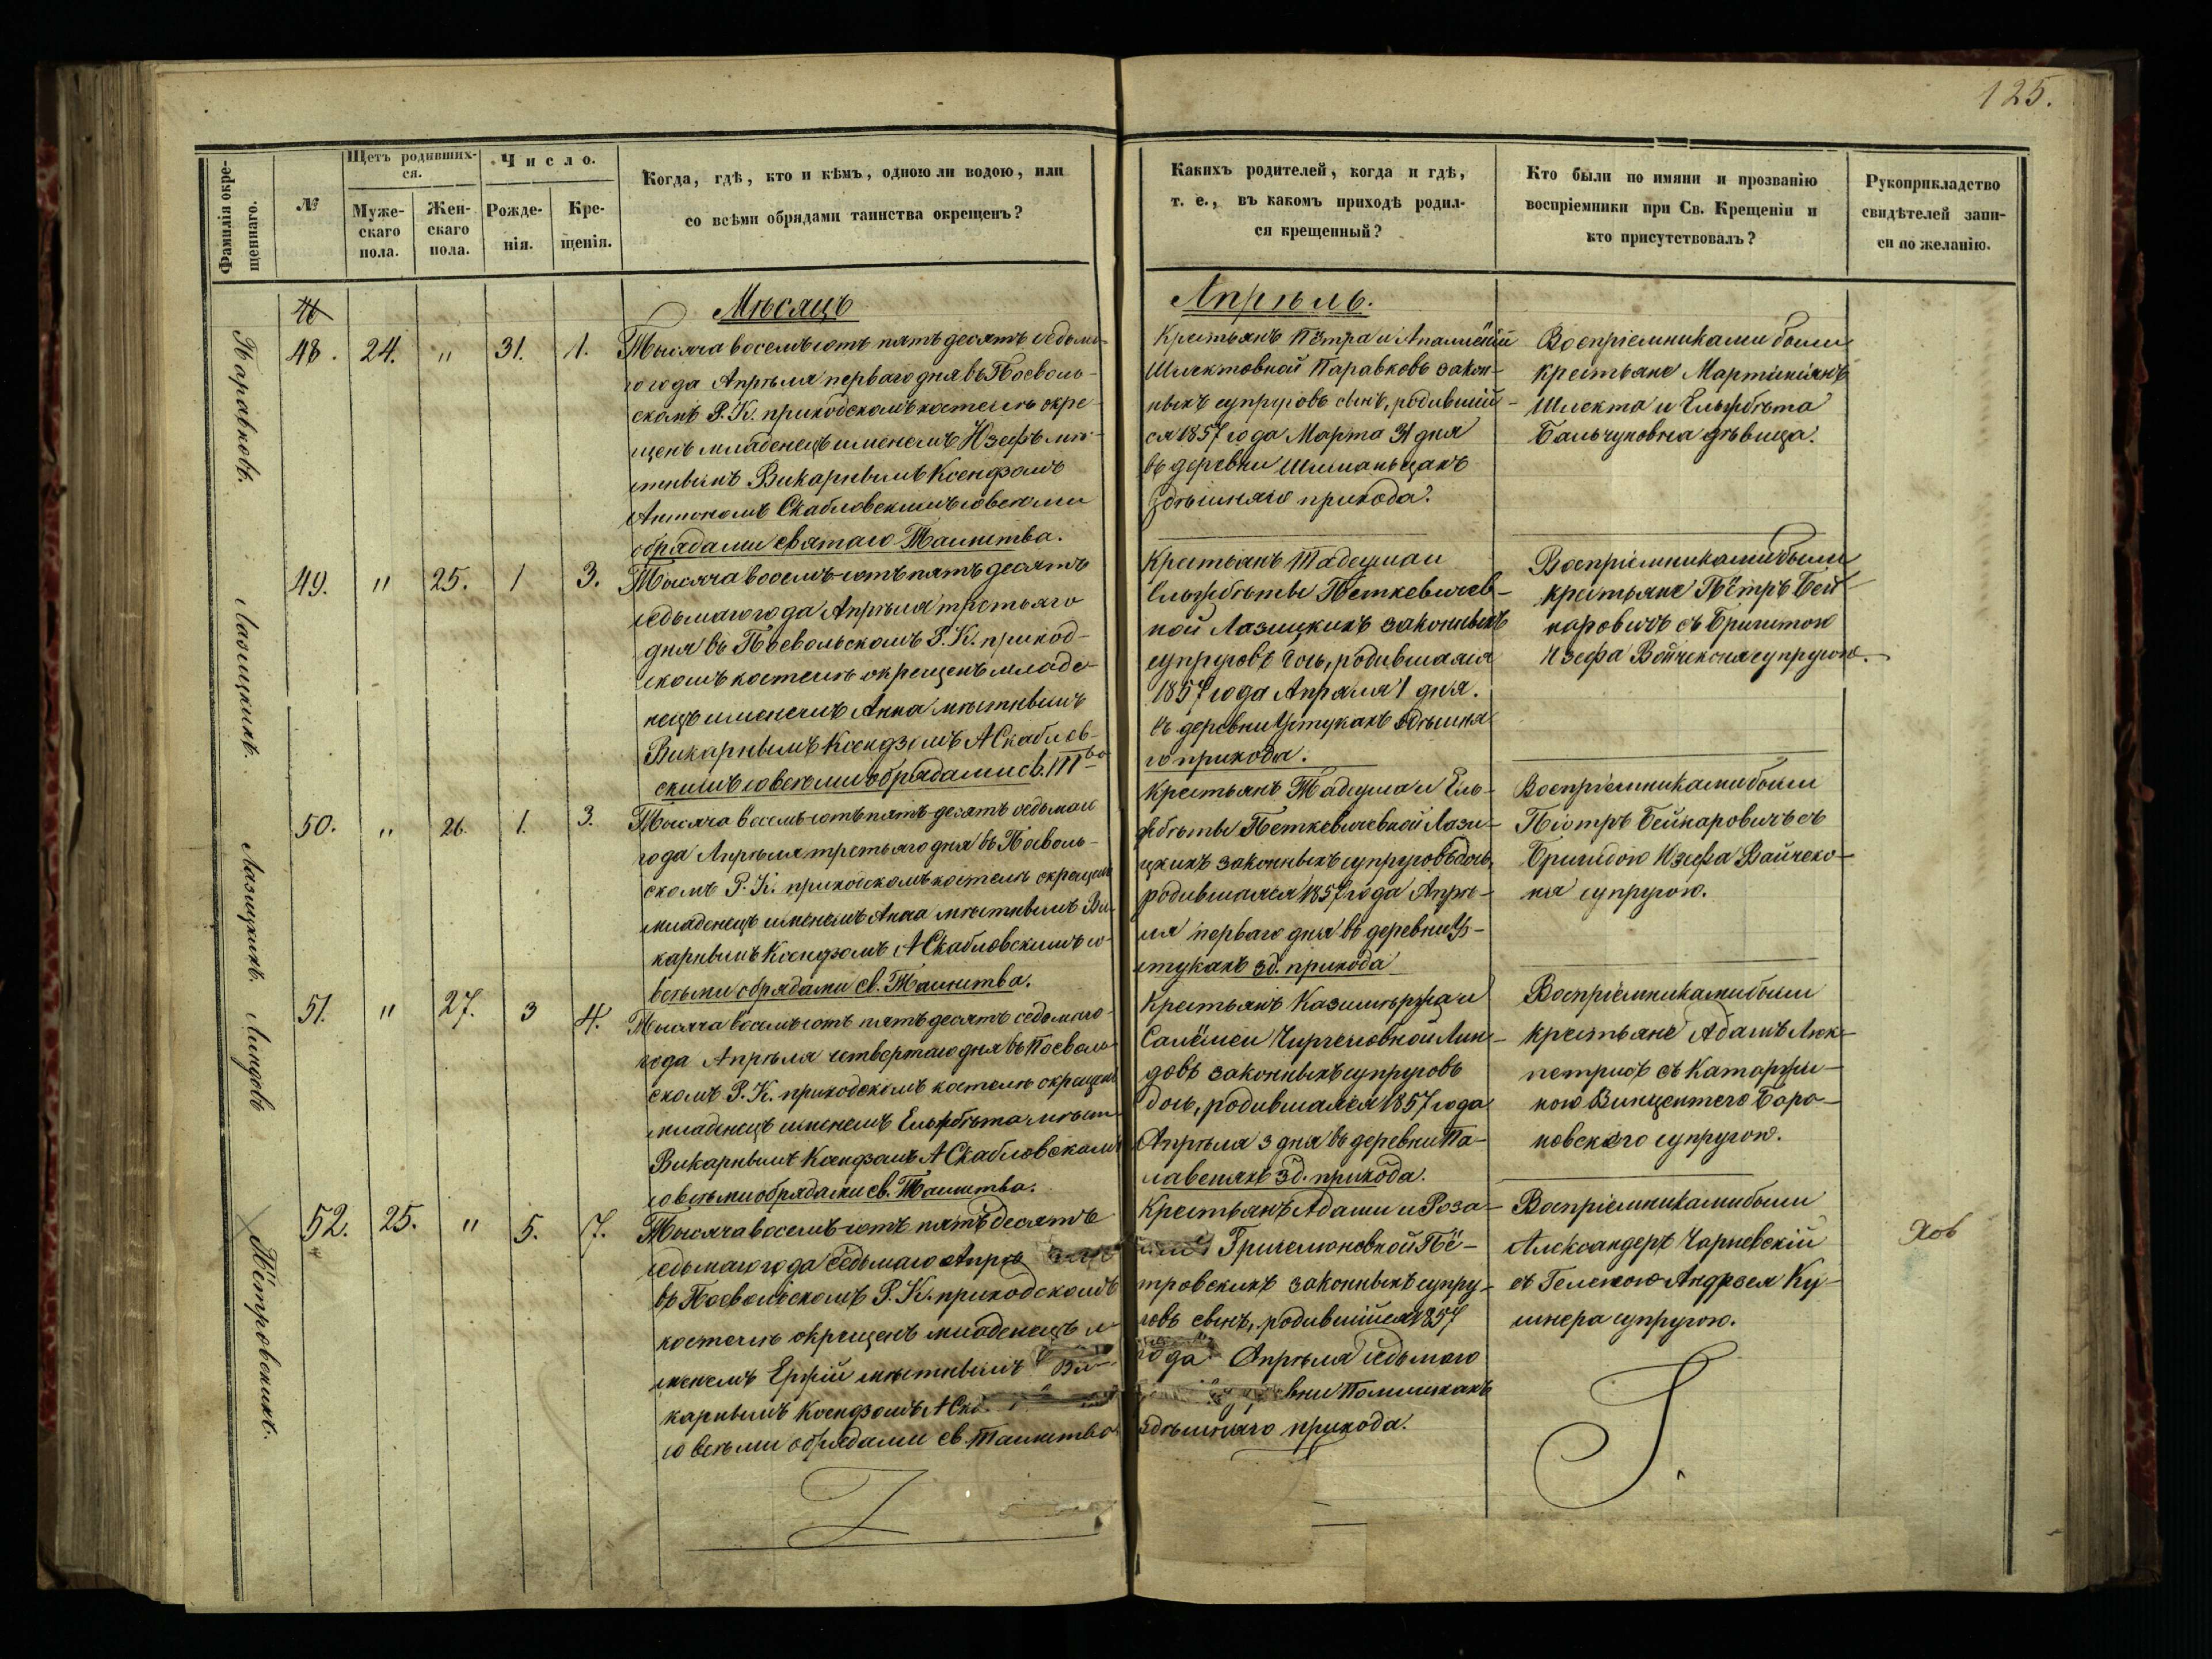 125.
Фамилія окре-
щеннаго.
№
Щетъ родивших-
ся.
Муже-
скаго
пола.
Жен-
скаго
пола.
Число.
Рожде-
нія.
Кре-
щенія.
Когда, гдѣ, кто и кѣмъ, одною ли водою, или
со всѣми обрядами таинства окрещенъ?
Какихъ родителей, когда и гдѣ,
т. е., въ какомъ приходѣ родил-
ся крещенный?
Кто были по имяни и прозванію
воспріемники при Св. Крещеніи и
кто присутствовалъ?
Рукоприкладство
свидѣтелей запи-
си по желанію.
Мѣсяцъ
Апрѣль.
Паравковъ.
48. 24. " 31. 1.
Тысяча восемьсотъ пятьдесятъ седьма-
го года Апрѣля перваго дня въ Посволь-
скомъ Р. К. приходскомъ костелѣ окре-
щенъ младенецъ именемъ Юзефъ мѣ-
стнымъ Викарнымъ Ксендзомъ
Антономъ Скабловскимъ со всѣми
обрядами святаго Таинства.
Крестьянъ Пётра и
Шлектовной Паравковъ закон-
ныхъ супруговъ сынъ, родившій-
ся 1857 года Марта 31 дня
въ деревни
здѣшняго прихода.
Воспріемниками были
крестьяне Мартиніянъ
Шлекта и Ельжбѣта
Бальчуновна дѣвица.
Лазицкихъ.
49. " 25. 1 3.
Тысяча восемьсотъ пятьдесятъ
седьмаго года Апрѣля третьяго
дня въ Посвольскомъ Р. К. приход-
скомъ костелѣ окрещенъ младе-
нецъ именемъ Анна мѣстнымъ
Викарнымъ Ксендзомъ А Скаблов-
скимъ со всѣми обрядами св. Т-ва
Крестьянъ Тадеуша и
Ельжбѣты Петкевичев-
ной Лазицкихъ законныхъ
супруговъ дочь, родившаяся
1857 года Апрѣля 1 дня.
въ деревни Устукахъ здѣшня-
го прихода.
Воспріемниками были
крестьяне Пётръ Бей-
наровичъ съ Бригитою
Юзефа Войчеконя супругою.
Лазицкихъ.
50. " 26. 1. 3.
Тысяча восемьсотъ пятьдесятъ седьмаго
года Апрѣля третьяго дня въ Посволь-
скомъ Р. К. приходскомъ костелѣ окрещенъ
младенецъ именемъ Анна мѣстнымъ Ви-
карнымъ Ксендзомъ А Скабловскимъ со
всѣми обрядами св. Таинства.
Крестьянъ Тадеуша и Ель-
жбѣты Петкевичевной Лази-
цкихъ законныхъ супруговъ дочь,
родившаяся 1857 года Апрѣ-
ля перваго дня въ деревни У-
стукахъ зд. прихода
Воспріемниками были
Піотръ Бейнаровичъ съ
Бригидою Юзефа Вайчеко-
ня супругою.
Линдовъ
51. " 27. 3 4.
Тысяча восемьсотъ пятьдесятъ седьмаго
года Апрѣля четвертаго дня въ Посволь-
скомъ Р. К. приходскомъ костелѣ окрещенъ
младенецъ именемъ Ельжбѣта мѣстн
Викарнымъ Ксендзомъ А Скабловскимъ
со всѣми обрядами св. Таинства.
Крестьянъ Казимѣржа и
Салёмеи Лин-
довъ законныхъ супруговъ
дочь, родившаяся 1857 года
Апрѣля 3 дня въ деревни Па-
лавеняхъ зд. прихода.
Воспріемниками были
крестьяне Адамъ Люк-
петрисъ съ Катаржи-
ною Винцентего Бара-
новскаго супругою.
Пётровскихъ.
52. 25. " 5. 7.
Тысяча восемьсотъ пятьдесятъ
седьмаго года седьмаго Апрѣ
въ Посвольскомъ Р. К. приходскомъ
костелѣ окрещенъ младенецъ и-
менемъ Ержій мѣстнымъ Ви-
карнымъ Ксендзомъ А Ска
со всѣми обрядами св. Таинства
Крестьянъ Адами и Роза-
Пё-
тровскихъ законныхъ супру-
говъ сынъ, родившійся 1857
года Апрѣля седьмаго
вни
здѣшняго прихода.
Воспріемниками были
Александеръ Чарневскій
съ Геленою Андрея Ку-
шнера супругою.